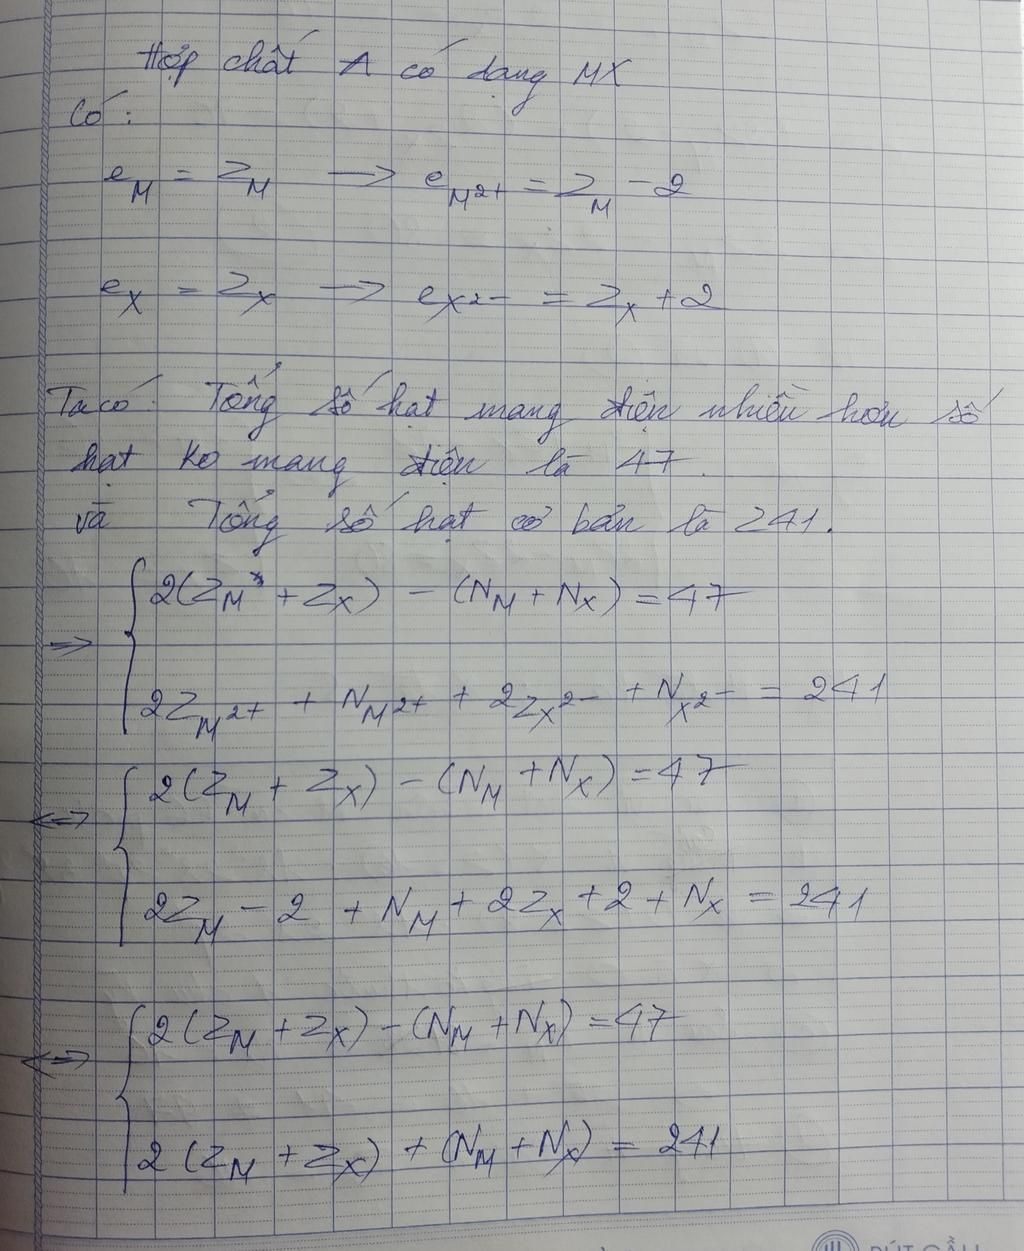 Hợp chất A có dạng MX
Có:
e_M = Z_M → e_M²⁺ = Z_M - 2
e_X = Z_X → e_X²⁻ = Z_X + 2
Ta có: Tổng số hạt mang điện nhiều hơn số
hạt ko mang điện là 47.
và Tổng số hạt cơ bản là 241.
⇒ { 2(Z_M + Z_X) - (N_M + N_X) = 47
2Z_M²⁺ + N_M²⁺ + 2Z_X²⁻ + N_X²⁻ = 241
⇔ { 2(Z_M + Z_X) - (N_M + N_X) = 47
2Z_M - 2 + N_M + 2Z_X + 2 + N_X = 241
⇔ { 2(Z_M + Z_X) - (N_M + N_X) = 47
2(Z_M + Z_X) + (N_M + N_X) = 241